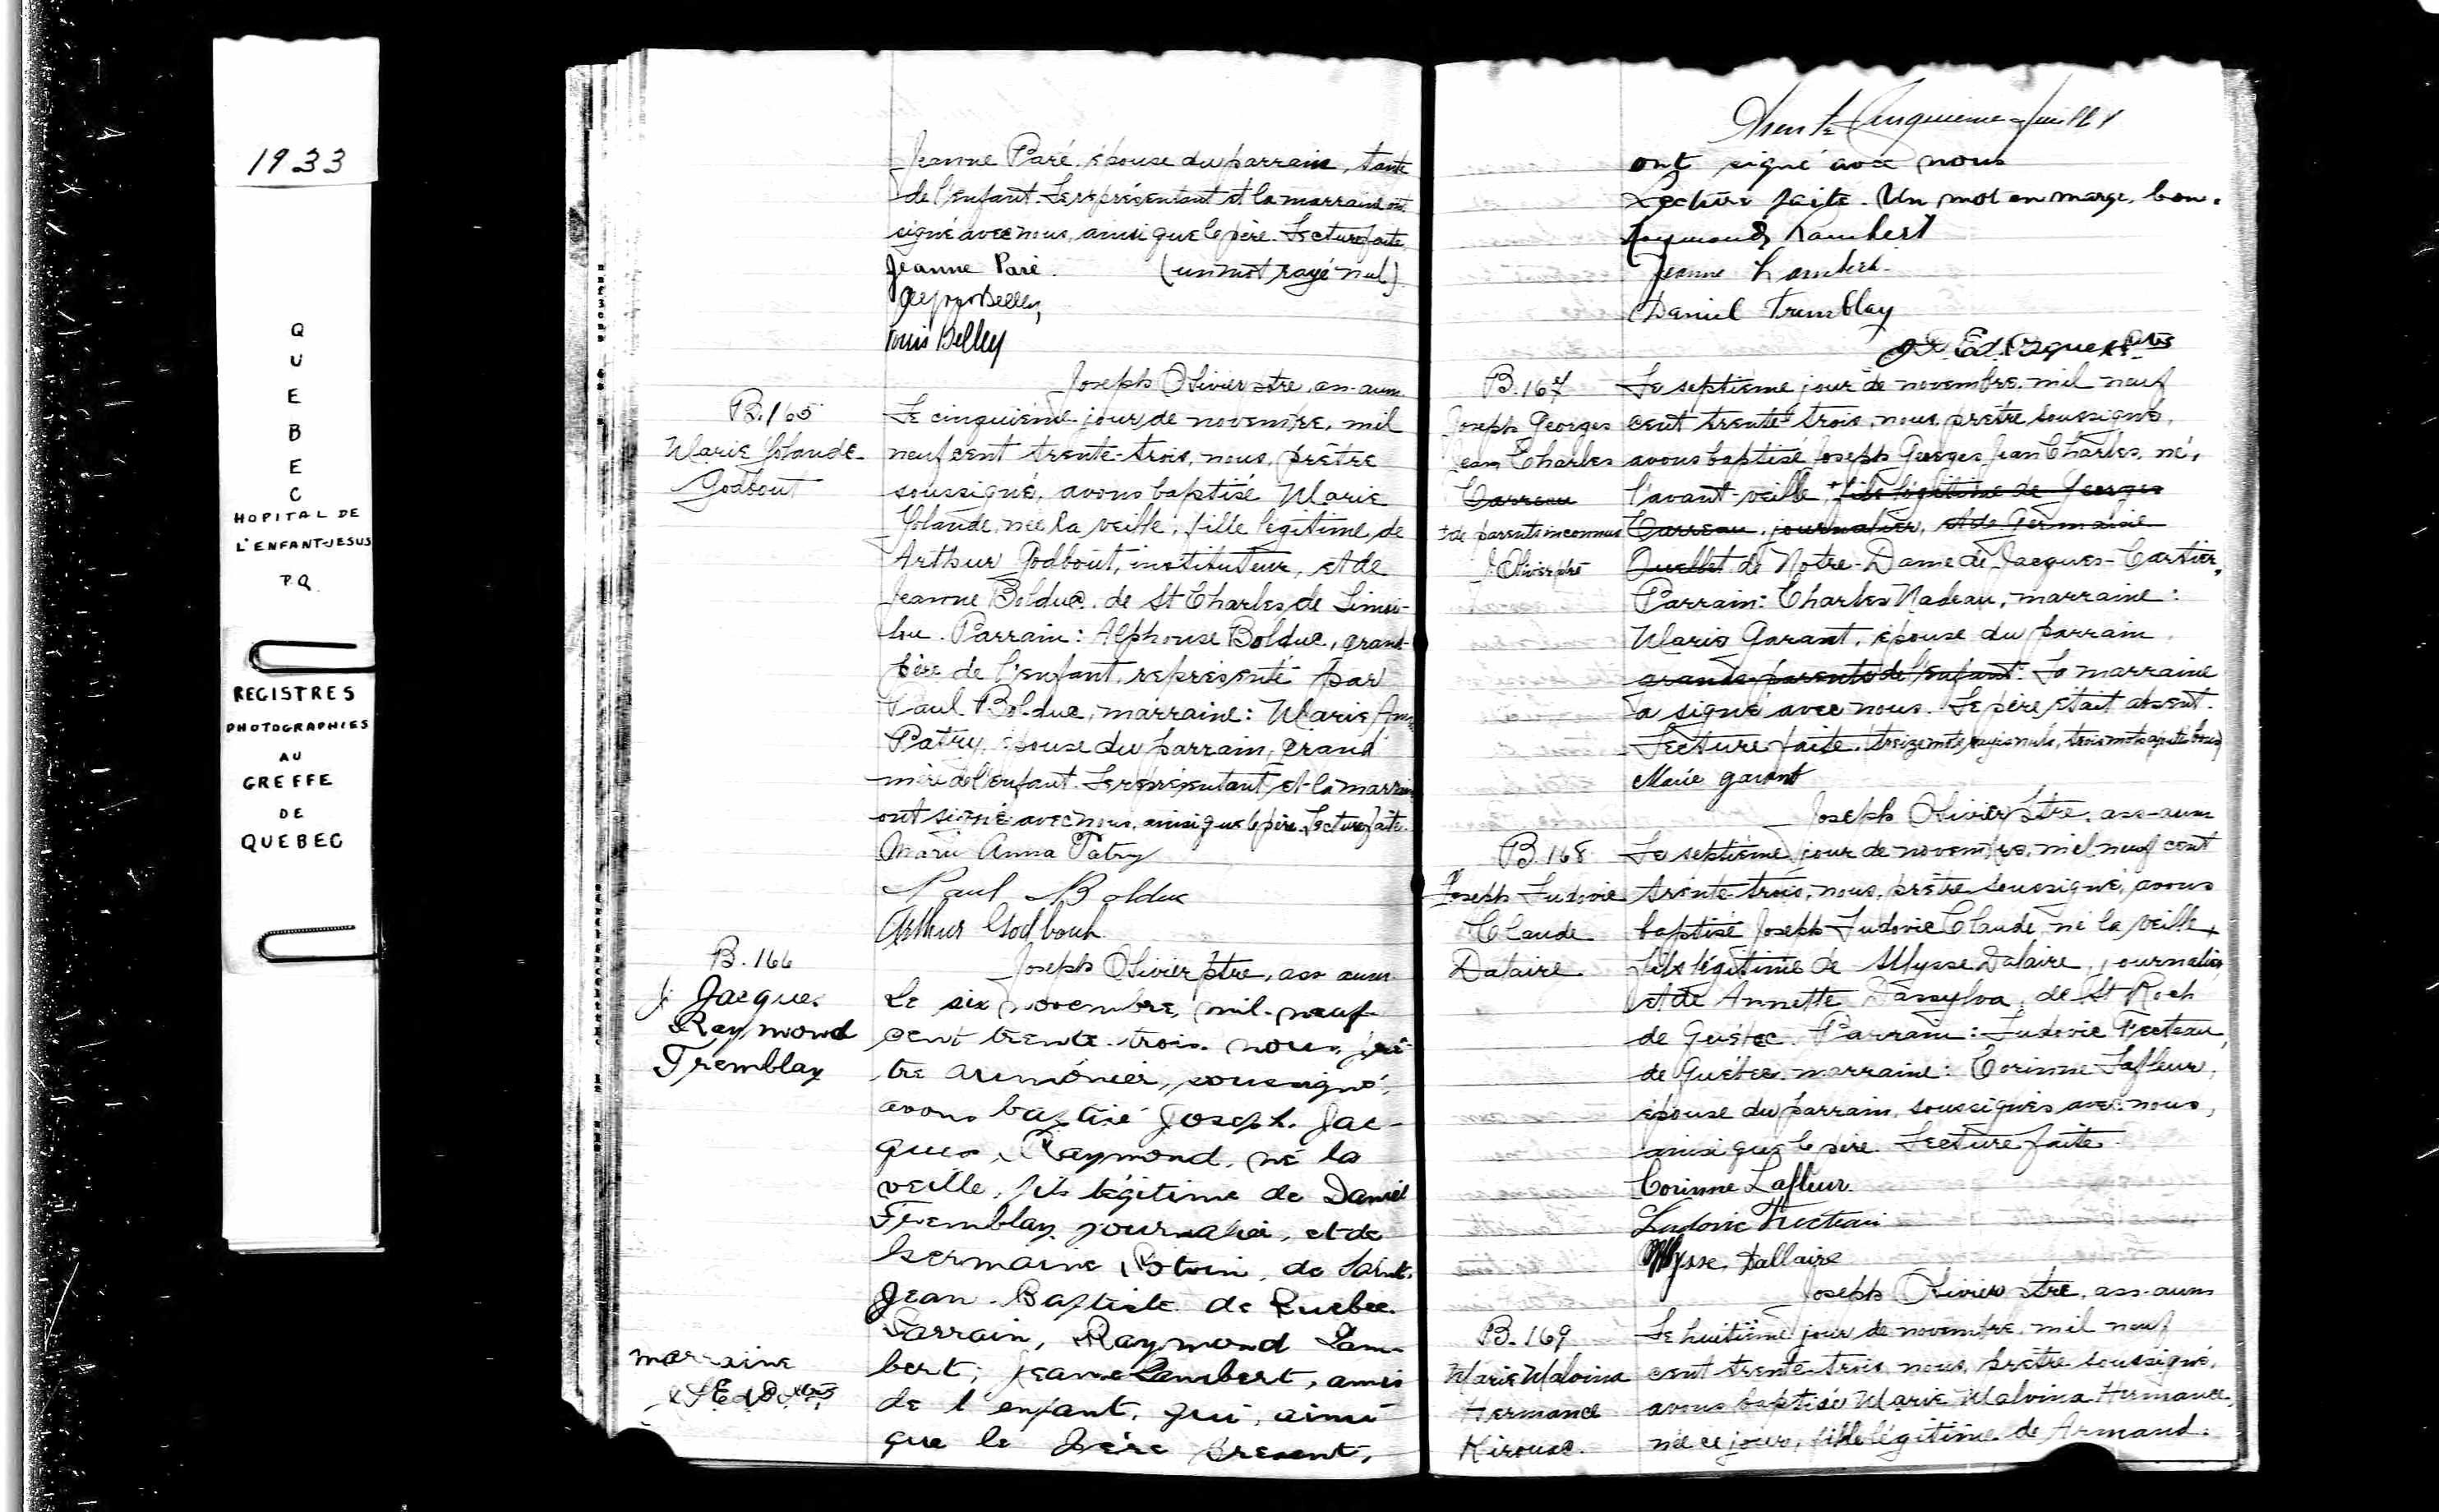 1933
Q
U
E
B
E
C
HOPITAL DE
L'ENFANT-JESUS
P.Q.
REGISTRES
PHOTOGRAPHIES
AU
GREFFE
DE
QUEBEC
Jeanne Paré, épouse du parrain, tante
de l'enfant. Le représentant et la marraine ont
signé avec nous, ainsi que le père. Lecture faite.
Jeanne Paré. (un mot rayé nul)
Belley
Louis Belley
Joseph Olivier ptre, ass-aum.
B.165
Marie Yolande
Godbout
Le cinquième jour de novembre, mil
neuf cent trente-trois, nous, prêtre
soussigné, avons baptisé Marie
Yolande, née la veille, fille légitime de
Arthur Godbout, instituteur, et de
Jeanne Bolduc, de St Charles de Limoi-
lou. Parrain: Alphonse Bolduc, grand-
père de l'enfant, représenté par
Paul Bolduc, marraine: Marie Anna
Patry, épouse du parrain, grand
mère de l'enfant. Le représentant et la marraine
ont signé avec nous, ainsi que le père. Lecture faite.
Marie Anna Patry
Paul Bolduc
Arthur Godbout
Joseph Olivier ptre, ass aum
B.166
J. Jacques
Raymond
Tremblay
Le six novembre, mil-neuf-
cent trente-trois, nous, prê-
tre aumônier, soussigné,
avons baptisé Joseph, Jac-
ques, Raymond, né la
veille, fils légitime de Daniel
Tremblay, journalier, et de
Germaine Potvin, de Saint-
Jean-Baptiste de Québec.
Parrain, Raymond Lam-
bert; Jeanne Lambert, amis
de l'enfant, qui, ainsi
que le père présent,
marraine
Trente Cinquième feuillet
ont signé avec nous
Lecture faite. Un mot en marge, bon.
Raymond Lambert
Jeanne Lambert
Daniel Tremblay
B.167
Joseph Georges
Jean Charles
Carreau
+de parents inconnus
J. Olivier ptre
Le septième jour de novembre, mil neuf
cent trente-trois, nous, prêtre soussigné,
avons baptisé Joseph Georges Jean Charles, né,
l'avant-veille, + fils légitime de Georges
Carreau, journalier, et de Germaine
Ouellet de Notre-Dame de Jacques-Cartier,
Parrain: Charles Nadeau, marraine:
Marie Garant, épouse du parrain,
grands-parents de l'enfant. La marraine
a signé avec nous. Le père était absent.
Lecture faite. treize mots rayés nuls, trois mots ajoutés bons
Marie garant
Joseph Olivier Ptre, ass-aum
B.168
Joseph Ludovic
Claude
Dalaire
Le septième jour de novembre, mil neuf cent
trente-trois, nous, prêtre soussigné, avons
baptisé Joseph Ludovic Claude, né la veille,
fils légitime de Ulysse Dalaire, journalier,
et de Annette Dassylva, de St Roch
de Québec. Parrain: Ludovic Fecteau,
de Québec, marraine: Corinne Lafleur,
épouse du parrain, soussignés avec nous,
ainsi que le père. Lecture faite.
Corinne Lafleur.
Ludovic Fecteau
Ulysse, Dallaire
Joseph Olivier ptre, ass-aum
B.169
Marie Malvina
Hermance
Kirouac.
Le huitième jour de novembre, mil neuf
cent trente-trois, nous, prêtre soussigné,
avons baptisé Marie Malvina Hermance,
née ce jour, fille légitime de Armand